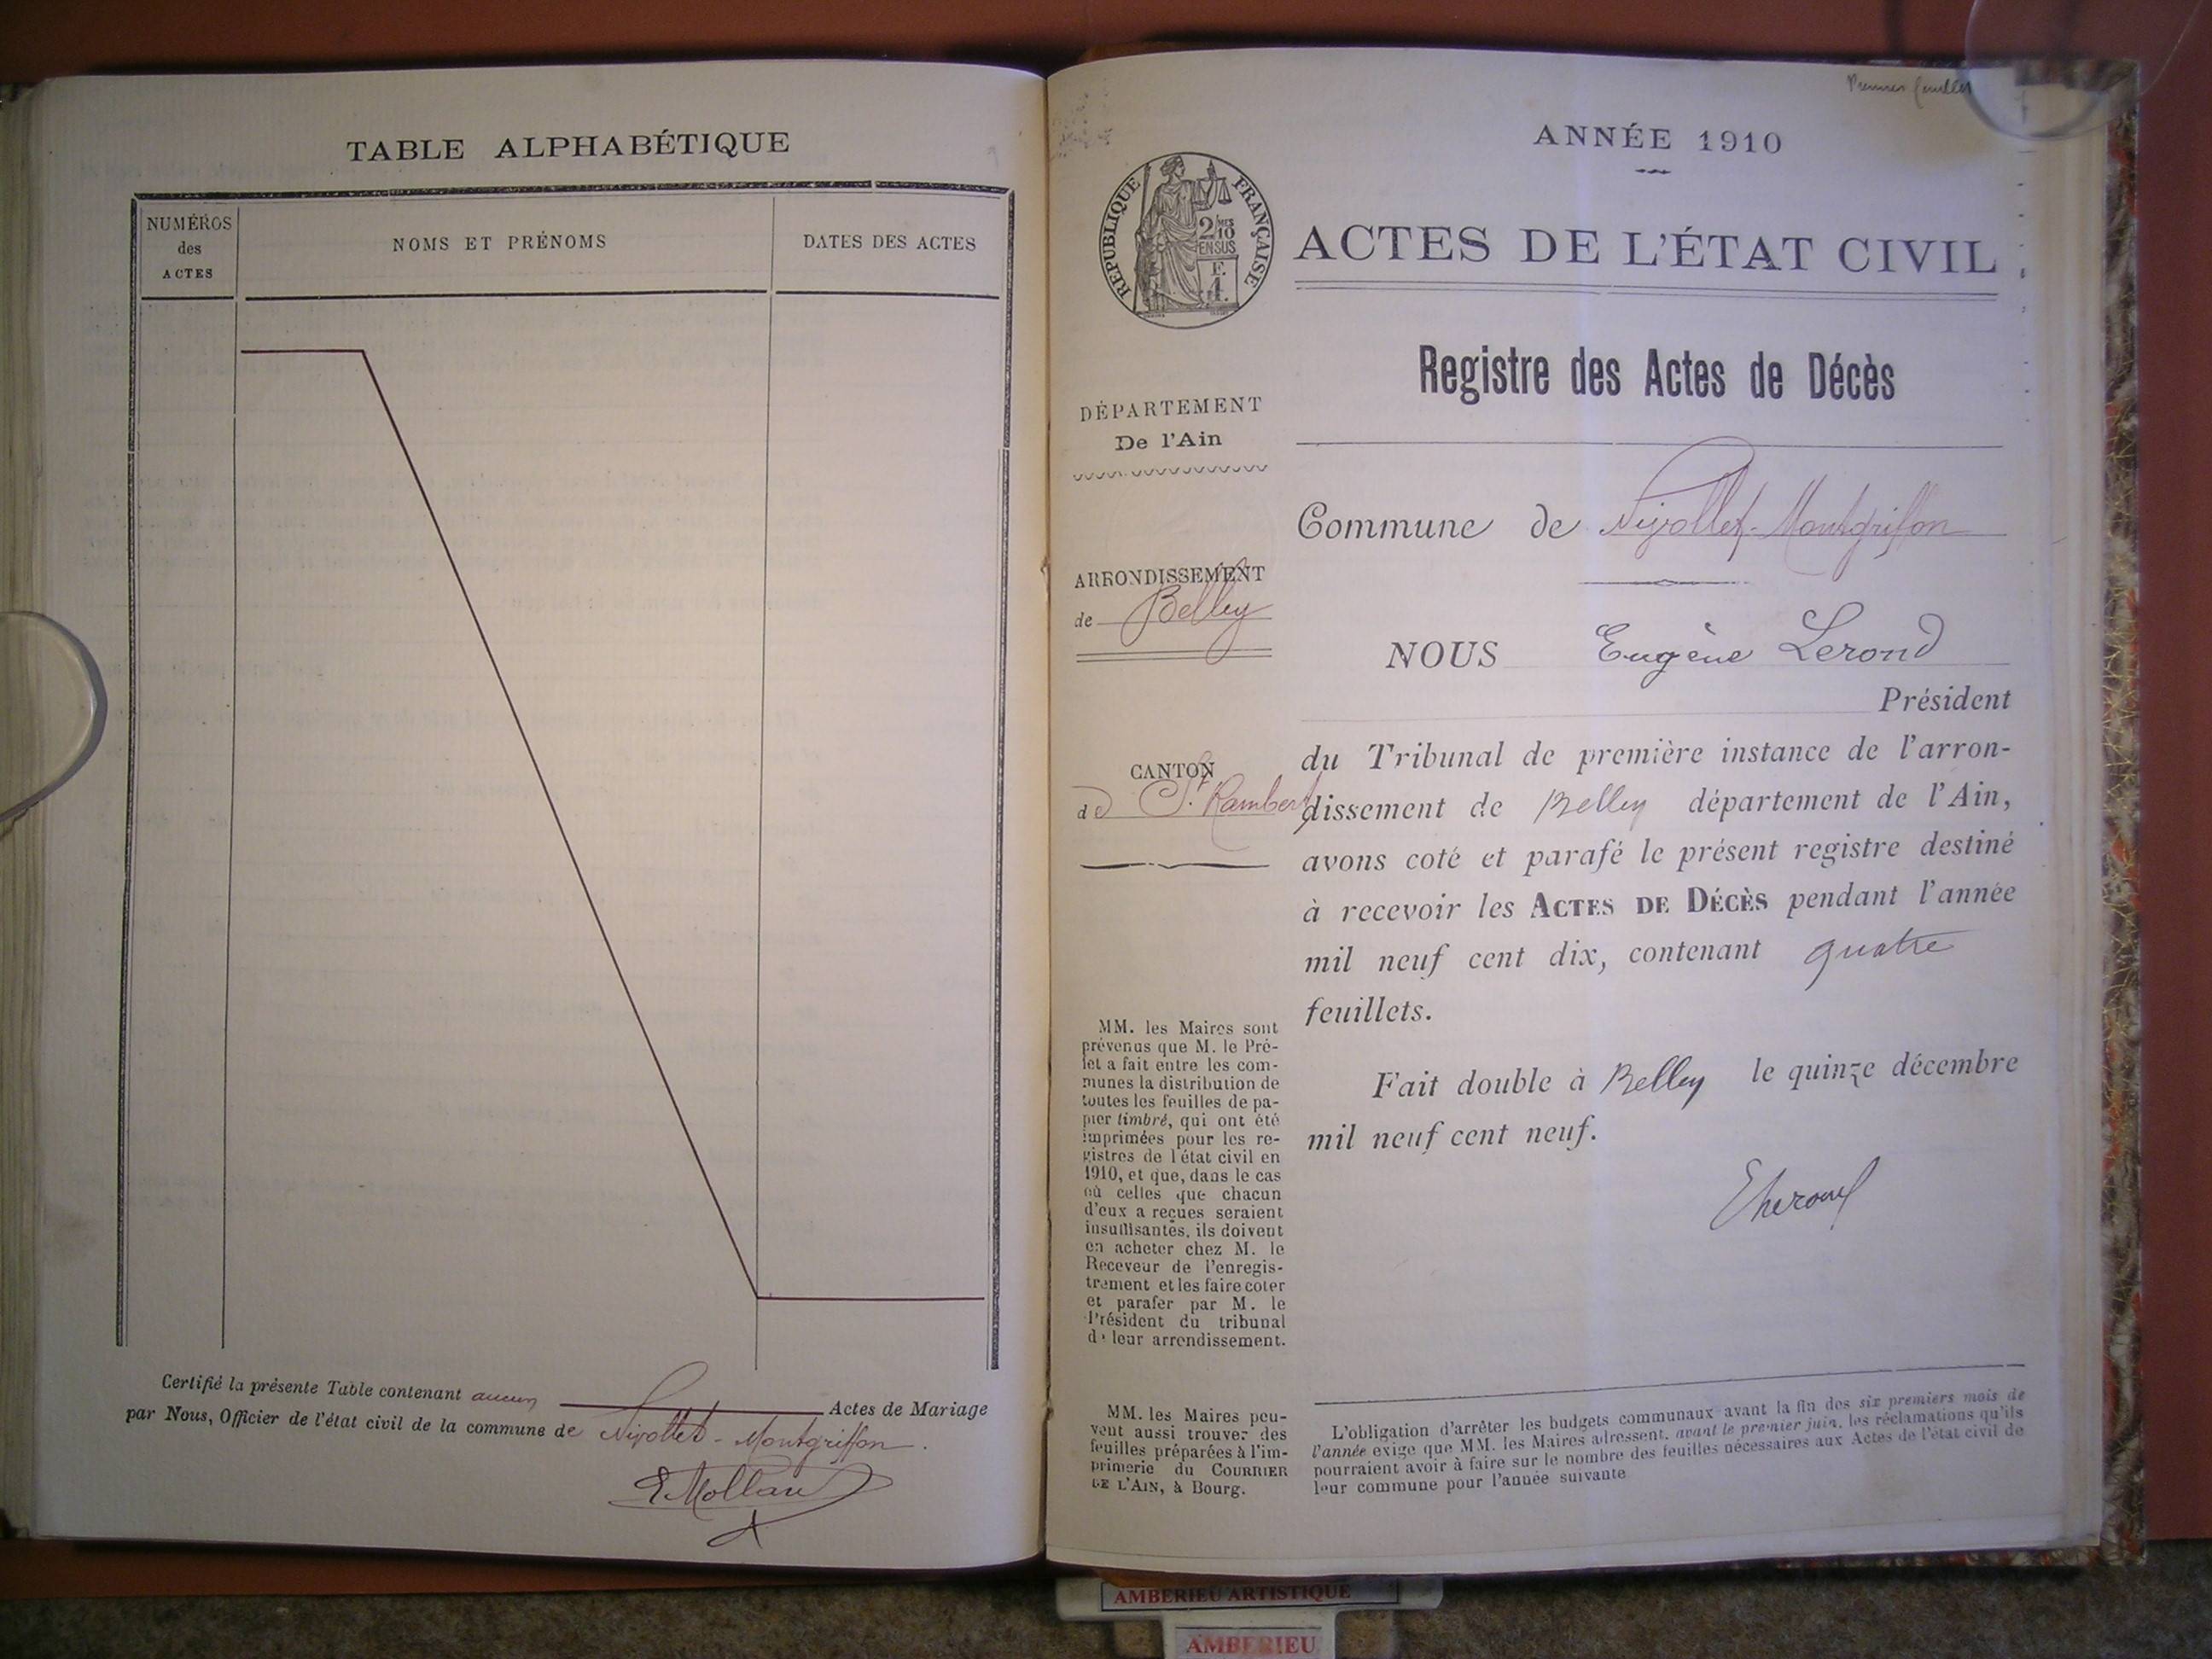 TABLE ALPHABÉTIQUE
NUMÉROS
des
ACTES
NOMS ET PRÉNOMS
DATES DES ACTES
Certifié la présente Table contenant aucun Actes de Mariage
par Nous, Officier de l'état civil de la commune de Nivollet-Montgriffon.
Premier feuillet
ANNÉE 1910
RÉPUBLIQUE FRANÇAISE
2/10
EN SUS
ACTES DE L'ÉTAT CIVIL
Registre des Actes de Décès
DÉPARTEMENT
De l'Ain
ARRONDISSEMENT
de Belley
CANTON
de St. Rambert
MM. les Maires sont
prévenus que M. le Pré-
fet a fait entre les com-
munes la distribution de
toutes les feuilles de pa-
pier timbré, qui ont été
imprimées pour les re-
gistres de l'état civil en
1910, et que, dans le cas
où celles que chacun
d'eux a reçues seraient
insuffisantes, ils doivent
en acheter chez M. le
Receveur de l'enregis-
trement et les faire coter
et parafer par M. le
Président du tribunal
de leur arrondissement.
MM. les Maires peu-
vent aussi trouver des
feuilles préparées à l'im-
primerie du COURRIER
DE L'AIN, à Bourg.
Commune de Nivollet-Montgriffon
NOUS Eugène Lerond
Président
du Tribunal de première instance de l'arron-
dissement de Belley département de l'Ain,
avons coté et parafé le présent registre destiné
à recevoir les ACTES DE DÉCÈS pendant l'année
mil neuf cent dix, contenant quatre
feuillets.
Fait double à Belley le quinze décembre
mil neuf cent neuf.
L'obligation d'arrêter les budgets communaux avant la fin des six premiers mois de
l'année exige que MM. les Maires adressent, avant le premier juin, les réclamations qu'ils
pourraient avoir à faire sur le nombre des feuilles nécessaires aux Actes de l'état civil de
leur commune pour l'année suivante
AMBERIEU ARTISTIQUE
AMBERIEU